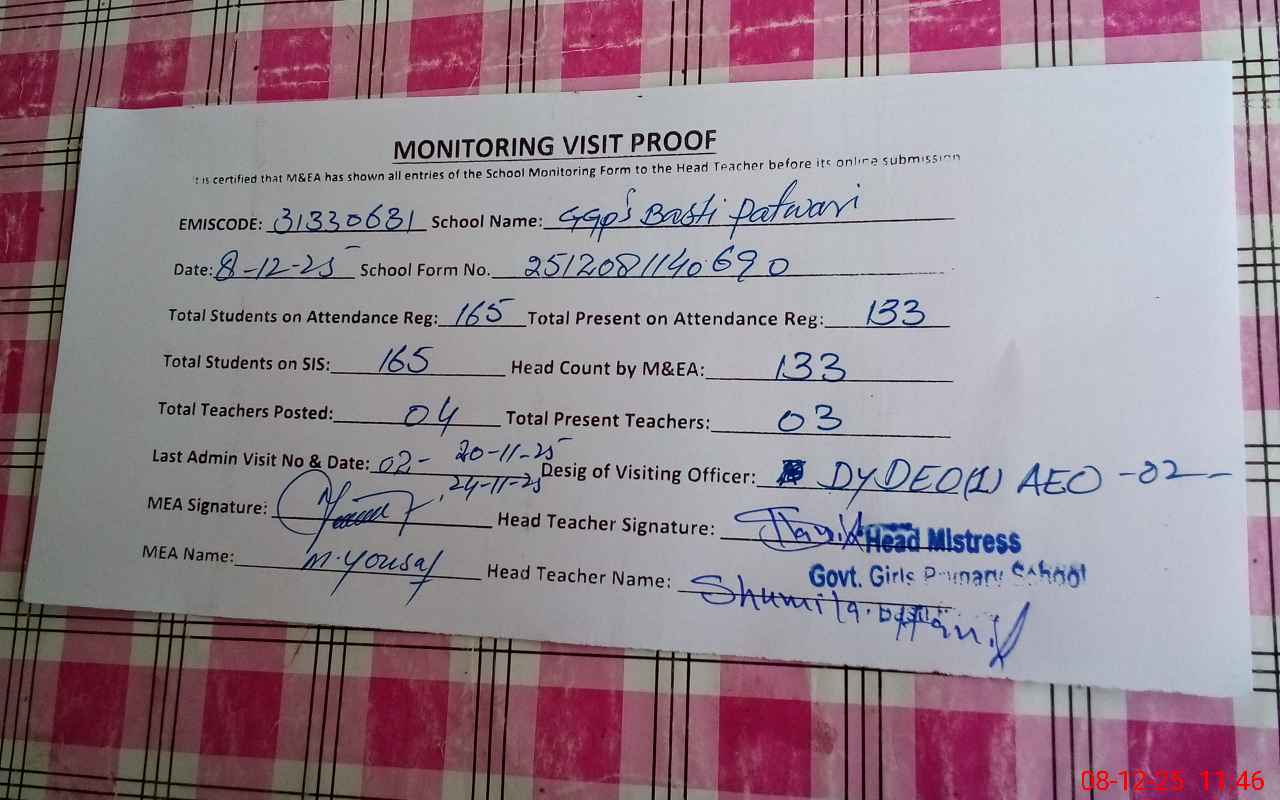 MONITORING VISIT PROOF
It is certified that M&EA has shown all entries of the School Monitoring Form to the Head Teacher before its online submission
EMISCODE: 31330631 School Name: GGP's Basti Patwari
Date: 8-12-25 School Form No. 2512081140690
Total Students on Attendance Reg: 165 Total Present on Attendance Reg: 133
Total Students on SIS: 165 Head Count by M&EA: 133
Total Teachers Posted: 04 Total Present Teachers: 03
Last Admin Visit No & Date: 02- 20-11-25, 24-11-25 Desig of Visiting Officer: DyDEO(1) AEO-02-
MEA Signature: Head Teacher Signature:
Head Mistress
Govt. Girls Primary School
MEA Name: M. Yousaf Head Teacher Name: Shumila Hanif
08-12-25 11:46